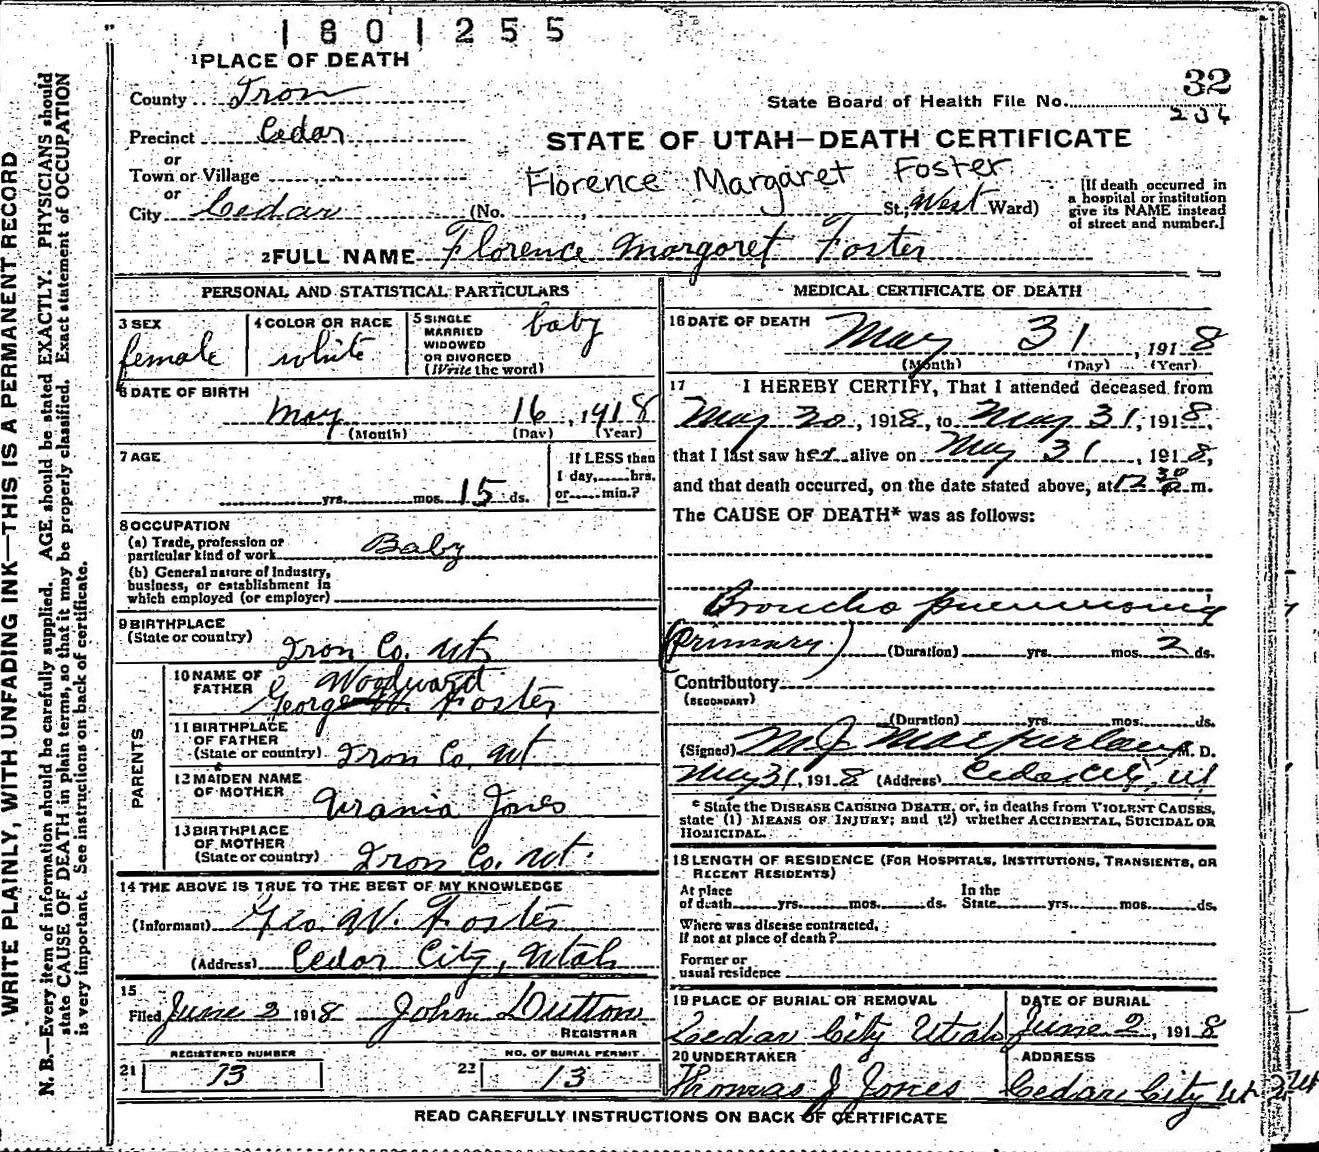 1801255
1 PLACE OF DEATH
County Iron
32
State Board of Health File No.
Precinct Cedar
STATE OF UTAH—DEATH CERTIFICATE
or
Town or Village
Florence Margaret Foster
or
City Cedar (No. St.; West Ward)
[If death occurred in a hospital or institution give its NAME instead of street and number.]
2 FULL NAME Florence Margaret Foster
WRITE PLAINLY, WITH UNFADING INK—THIS IS A PERMANENT RECORD
N. B.—Every item of information should be carefully supplied. AGE should be stated EXACTLY. PHYSICIANS should
state CAUSE OF DEATH in plain terms, so that it may be properly classified. Exact statement of OCCUPATION
is very important. See instructions on back of certificate.
PERSONAL AND STATISTICAL PARTICULARS
3 SEX
female
4 COLOR OR RACE
white
5 SINGLE
MARRIED
WIDOWED
OR DIVORCED
(Write the word)
baby
6 DATE OF BIRTH
May 16, 1918
(Month) (Day) (Year)
7 AGE
yrs. mos. 15 ds.
If LESS than
1 day, hrs.
or min.?
8 OCCUPATION
(a) Trade, profession or
particular kind of work Baby
(b) General nature of Industry,
business, or establishment in
which employed (or employer)
9 BIRTHPLACE
(State or country) Iron Co. Ut
PARENTS
10 NAME OF
FATHER
Woodward
George W. Foster
11 BIRTHPLACE
OF FATHER
(State or country) Iron Co. Ut.
12 MAIDEN NAME
OF MOTHER Urania Jones
13 BIRTHPLACE
OF MOTHER
(State or country) Iron Co. Ut.
14 THE ABOVE IS TRUE TO THE BEST OF MY KNOWLEDGE
(Informant) Geo. W. Foster
(Address) Cedar City, Utah
15
Filed June 3 1918 John Dutton
REGISTRAR
REGISTERED NUMBER
21 13
NO. OF BURIAL PERMIT
22 13
MEDICAL CERTIFICATE OF DEATH
16 DATE OF DEATH
May 31, 1918
(Month) (Day) (Year)
17 I HEREBY CERTIFY, That I attended deceased from
May 20, 1918, to May 31, 1918,
that I last saw her alive on May 31, 1918,
and that death occurred, on the date stated above, at 12 30 m.
The CAUSE OF DEATH* was as follows:
Broncho pneumonia
(Primary) (Duration) yrs. mos. 2 ds.
Contributory
(SECONDARY)
(Duration) yrs. mos. ds.
(Signed) M J Macfarlane M. D.
May 31, 1918 (Address) Cedar City, Ut
* State the DISEASE CAUSING DEATH, or, in deaths from VIOLENT CAUSES,
state (1) MEANS OF INJURY; and (2) whether ACCIDENTAL, SUICIDAL OR
HOMICIDAL.
18 LENGTH OF RESIDENCE (FOR HOSPITALS, INSTITUTIONS, TRANSIENTS, OR
RECENT RESIDENTS)
At place
of death yrs. mos. ds.
In the
State yrs. mos. ds.
Where was disease contracted,
If not at place of death?
Former or
usual residence
19 PLACE OF BURIAL OR REMOVAL
Cedar City Utah
DATE OF BURIAL
June 2, 1918
20 UNDERTAKER
Thomas J Jones
ADDRESS
Cedar City Ut
READ CAREFULLY INSTRUCTIONS ON BACK OF CERTIFICATE